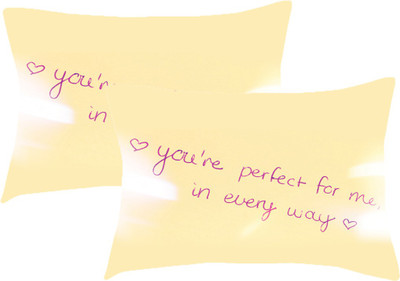 ♡ you'r
in
♡ you're perfect for me,
in every way ♡